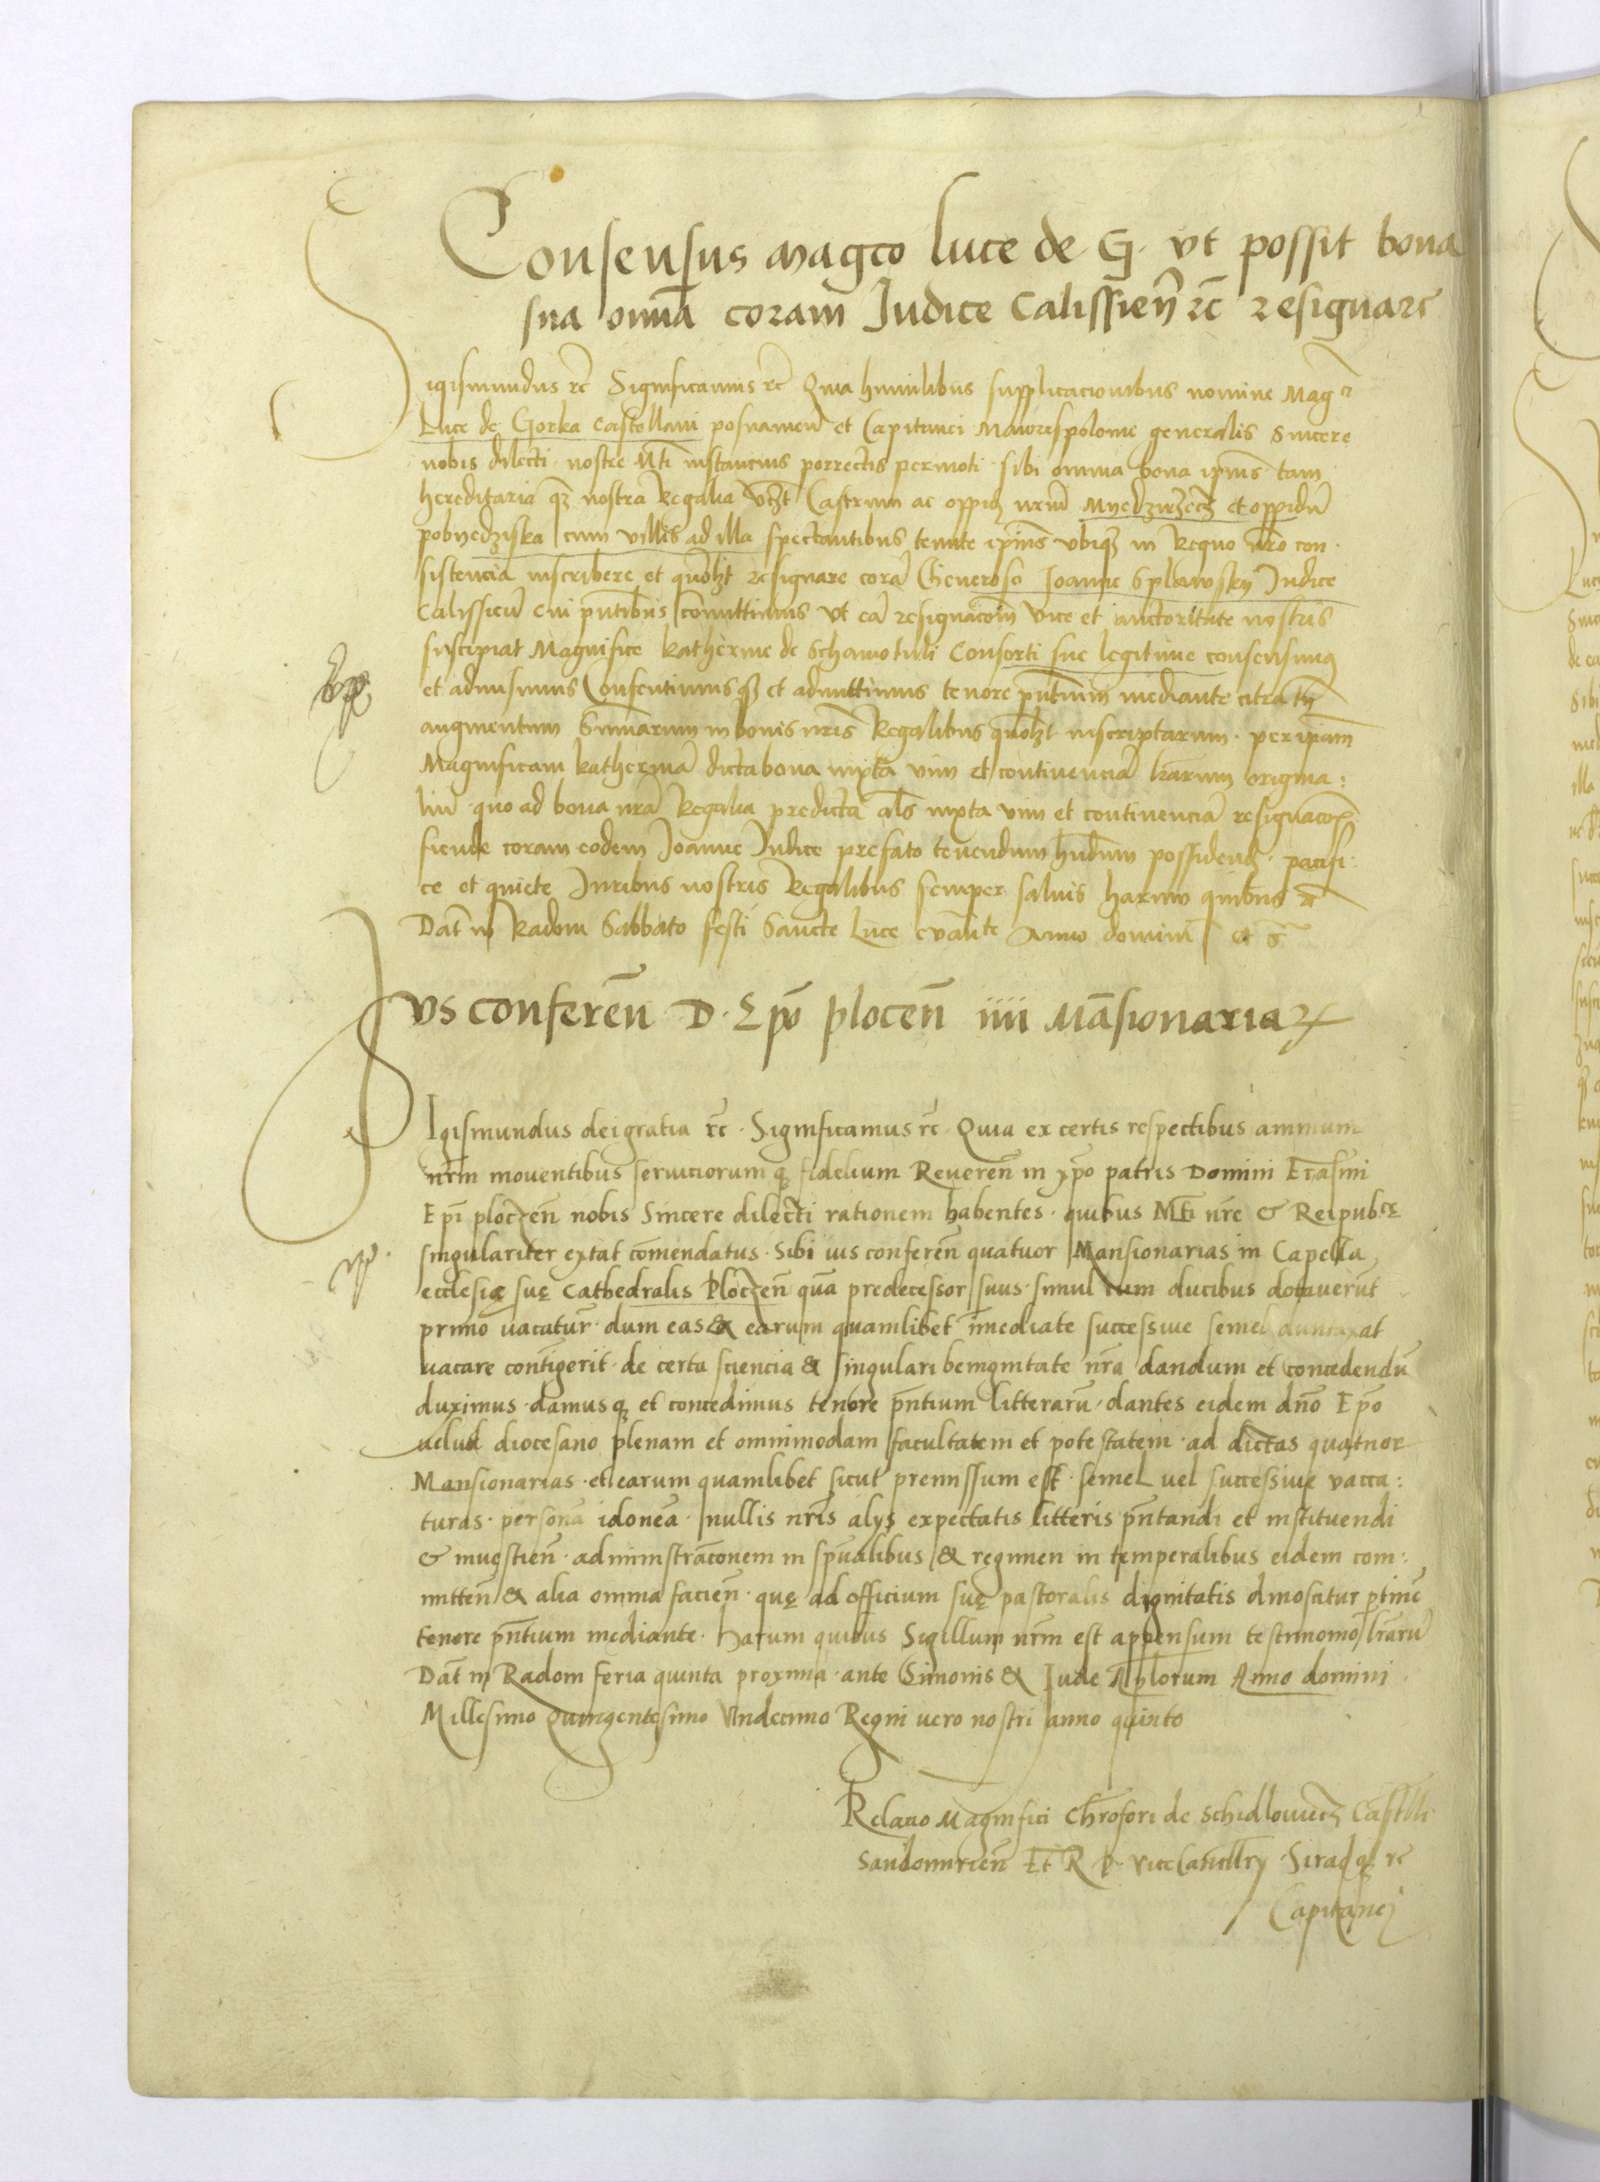 Consensus magco luce de G. vt possit bona
sua omīa coram Judice Calissieñ rc̄ resignare
Sigismundus rc̄ Significamus rc̄ Quia humilibus supplicacionibus nomine Magci
Luce de Gorka Castellani posnanieñ et Capitanei Maiorispolonie generalis Sincere
nobis dilecti nostre Mti instancius porrectis permoti sibi omnia bona ipius tam
hereditaria qz nostra Regalia Castrum ac oppid nrm Myedzirzecz et oppidū
pobyedziska cum villis ad illa spectantibus tenute ipius vbiqz in Regno nro con
sistencia inscribere et resignare corā Generoso Joanne Splawsky Judice
Calissieñ Cui pntibus comittimus vt eā resignacoem vice et auctoritate nostris
suscipiat Magnifice katherine de Schamotuli Consorti sue legitime consensimus
et admisimus Consentimusqz et admittimus tenore pntium mediante citra tñ
augmentum Summarum in bonis nris Regalibus inscriptarum per ipam
Magnificam katherinā dicta bona iuxta vim et continenciā lrarum origina:
liū quo ad bona nra Regalia predicta als iuxta vim et continenciā resignacois
fiende coram eodem Joanne Judice prefato tenendum hndum possidend pacifi:
ce et quiete Juribus nostris Regalibus semper saluis harum quibus rc̄
Dat in Radom Sabbato festi Sancte Luce Anno domini
Jvs confereñ D. Epoploceñ iiii Māsionaria
Sigismundus dei gratia rc̄ . Significamus rc̄ . Quia ex certis respectibus animum
nrm mouentibus seruiciorum qz fidelium Reuereñ in xpo patris Domini Erasmi
Epi ploczeñ nobis Sincere dilecti rationem habentes . quibus Mti nre & Reipubce
singulariter extat comendatus . Sibi ius confereñ quatuor Mansionarias in Capella
ecclesię suę Cathedralis Ploczeñ quā predecessor suus . simul cum ducibus dotauerūt
primo vacatur . dum eas & earum quamlibet imediate successiue semel duntaxat
vacare contigerit . de certa sciencia & singulari benignitate nra dandum et concedendū
duximus . damusqz et concedimus tenore pntium litterarū . dantes eidem dno Epo
velud diocesano plenam et omnimodam facultatem et potestatem . ad dictas quatuor
Mansionarias . et earum quamlibet sicut premissum est . semel vel successiue vacca:
turas . personā idoneā . nullis nris alys expectatis litteris pntandi et instituendi
& inuestieñ . administracionem in spualibus & regimen in temperalibus eidem com:
mitteñ & alia omnia facieñ . quę ad officium suę pastoralis dignitatis dinoscitur ptine
tenore pntium mediante . Harum quibus Sigillum nrm est appensum testimonio lrarū
Dat in Radom feria quinta proxima . ante Simonis & Jude Aplorum Anno domini
Millesimo Quingentesimo Vndecimo Regni vero nostri anno quinto
Relatio Magnifici Chrofori de Schidlowiecz Castelli
Sandomirieñ Et R P. ViceCancellry . Siradqz rc̄
Capitanei